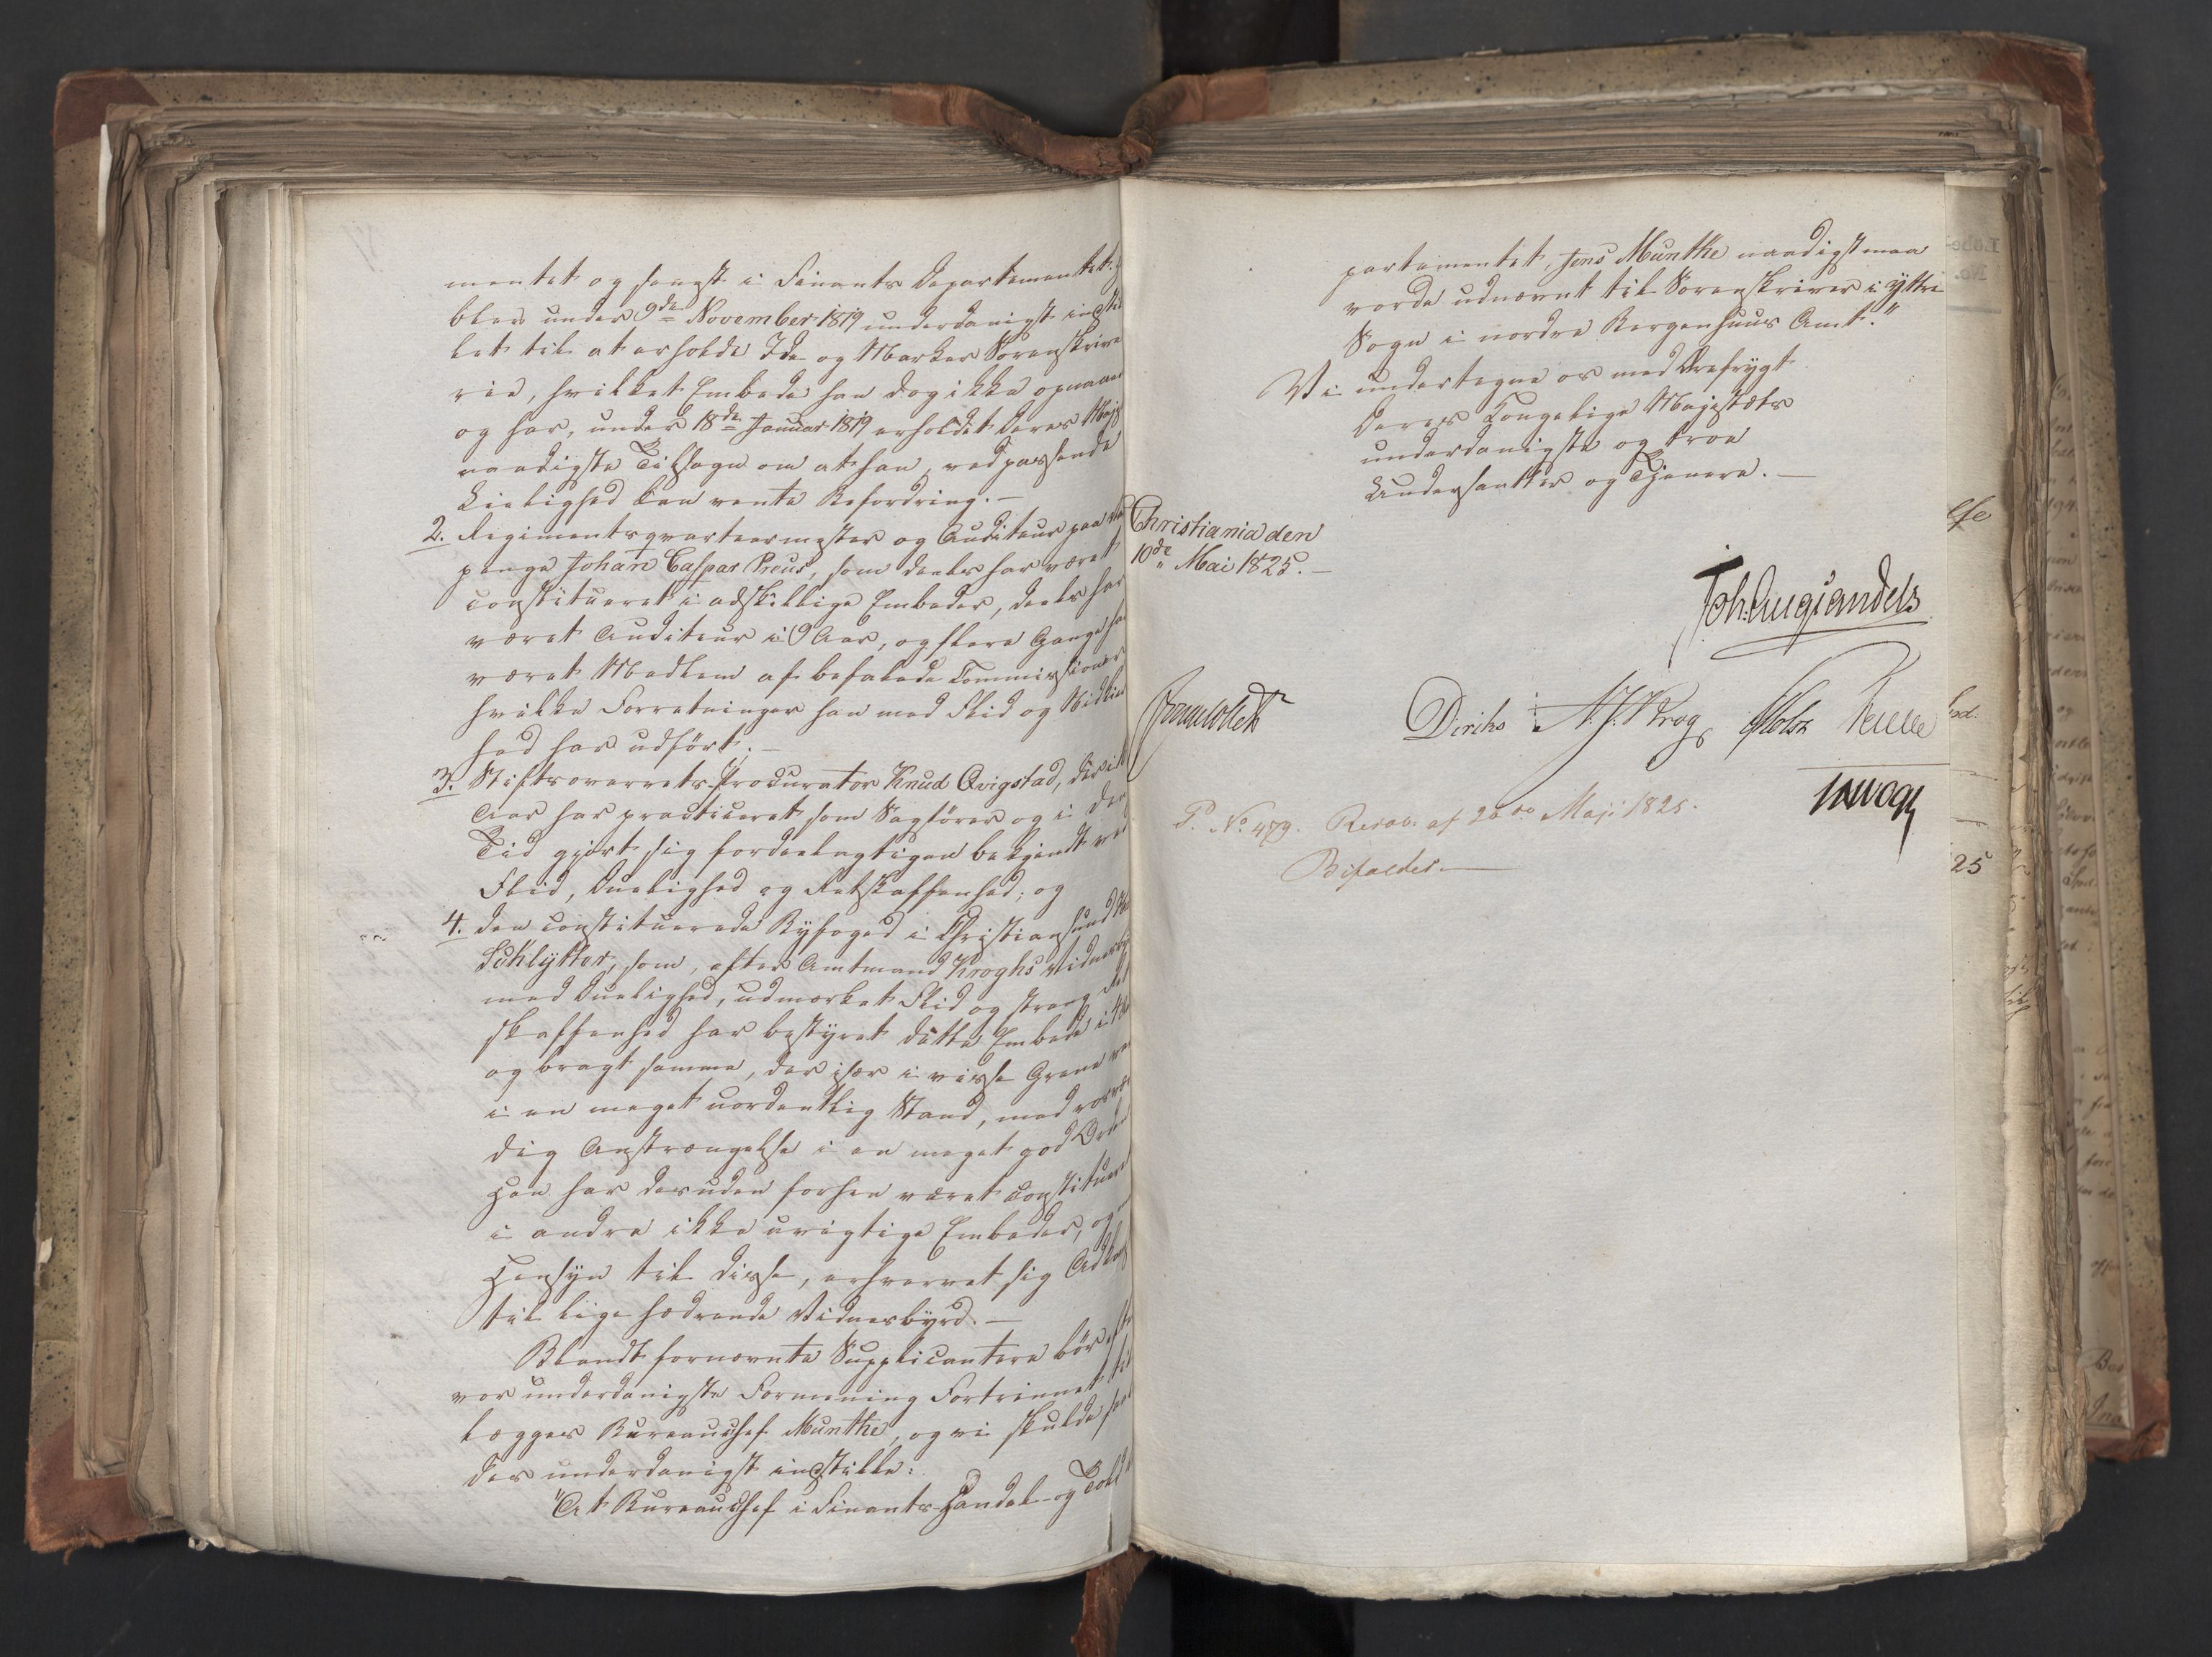 mentet og senest i Finants Departementet,
blev under 9de November 1819 underdanigst indstil
let til at erholde Ide og Marker Sorenskrive
rie, hvilket Embede han dog ikke opnaaede
og har, under 18de Januar 1819 erholdt Deres Majs
naadigste Tilsagn om at han, ved passende
Leilighed kan vente Befordring. —
2. Regimentsqvarteermester og Auditeur paa Vart
penge Johan Caspar Preus, som deels har været
constitueret i adskillige Embeder, deels har
været Auditeur i 9 Aar, og flere Gange har
været Medlem af befalede Commissioner
hvilke Forretninger han med Flid og Nidkier
hed har udført. —
3. Stiftsoverrets-Procurator Knud Qvigstad, der i
Aar har practiceret som Sagfører og i den
Tid gjort sig fordeelagtigen bekjendt ved
Flid, Duelighed og Retskaffenhed; og
4. den constituerede Byfoged i Christiansund
Schlytter, som, efter Amtmand Kroghs Vidnesby
med Duelighed, udmærket Flid og streng Ret
skaffenhed har bestyret dette Embede i
og bragt samme, der især i visse Grene var
i en meget uordentlig Stand, med
dig Anstrængelse i en meget god Orden
Han har desuden forhen været constitueret
i andre ikke uvigtige Embeder, og
Hensyn til disse, erhvervet sig Adkomst
til lige hædrende Vidnesbyrd. —
Blandt fornævnte Supplicantere bør efter
vor underdanigste Formening Fortrinnet til
lægges Bureauchef Munthe, og vi skulde saa
der underdanigst indstille:
"At Bureauchef i Finants- Handel- og Told
partementet, Jens Munthe naadigst maa
vorde udnævnt til Sorenskriver i Yttre
Sogn i nordre Bergenhuus Amt."
Vi undertegne os med Ærefrygt
Deres Kongelige Majestæts
underdanigste og troe
Undersaatter og Tjenere. —
Christiania den
10de Mai 1825. —
Joh. Aug. Sandels
Sommerhielm
Diriks N. J. Krog Holst
P. No 479. Resol. af 20de Maji 1825.
Bifaldes. —